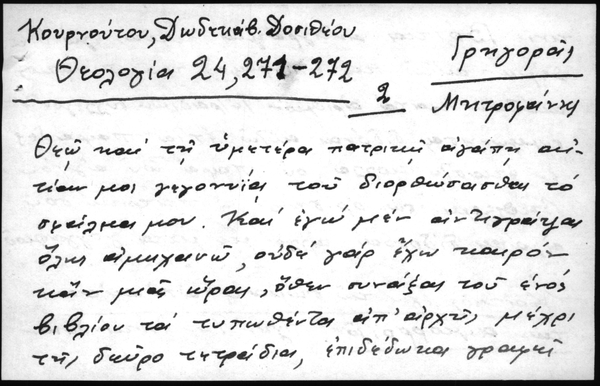 Κουρνούτου, Δωδεκάβ. Δοσιθέου
Θεολογία 24, 271-272
Γρηγοράς
2
Μητροφάνης
Θεῷ καὶ τῇ ὑμετέρᾳ πατρικῇ ἀγάπῃ αἰ-
τίαν μοι γεγονυίᾳ τοῦ διορθώσασθαι τό
σφάλμα μου. Καί ἐγώ μέν ἀντιγράψαι
ὅλης ἀμηχανῶ, οὐδέ γάρ ἔχω καιρόν
κἄν μιᾶς ὥρας, ὅθεν συνάξας τοῦ ἑνός
βιβλίου τά τυπωθέντα ἀπ' ἀρχῆς μέχρι
τῆς δεῦρο τετράδια, ἐπιδέδωκα γραφῇ